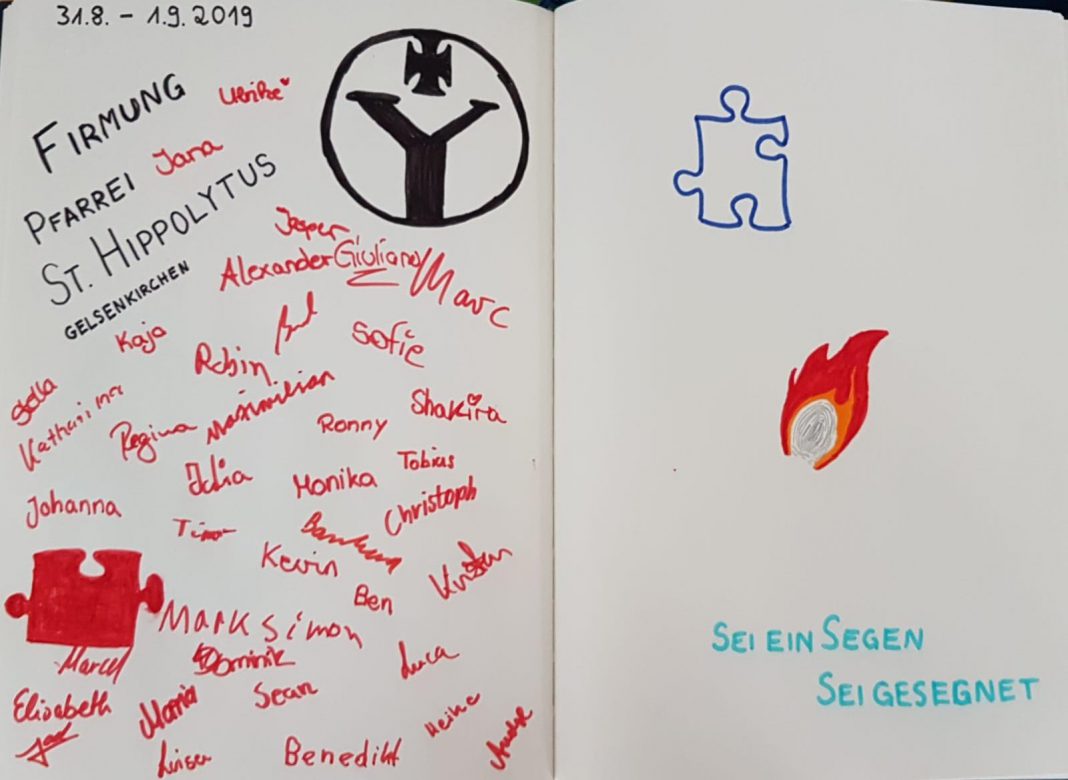 31.8. – 1.9. 2019
FIRMUNG
Ulrike
PFARREI
Jana
ST. HIPPOLYTUS
GELSENKIRCHEN
Jesper
Alexander
Giuliano
Marc
Kaja
Robin
Sofie
Stella
Katharina
Regina
Maximilian
Ronny
Shakira
Julia
Monika
Tobias
Johanna
Timo
Christoph
Kevin
Ben
Kristin
Mark Simon
Marcel
Dominik
Luca
Elisabeth
Maria
Sean
Heike
Benedikt
SEI EIN SEGEN
SEI GESEGNET